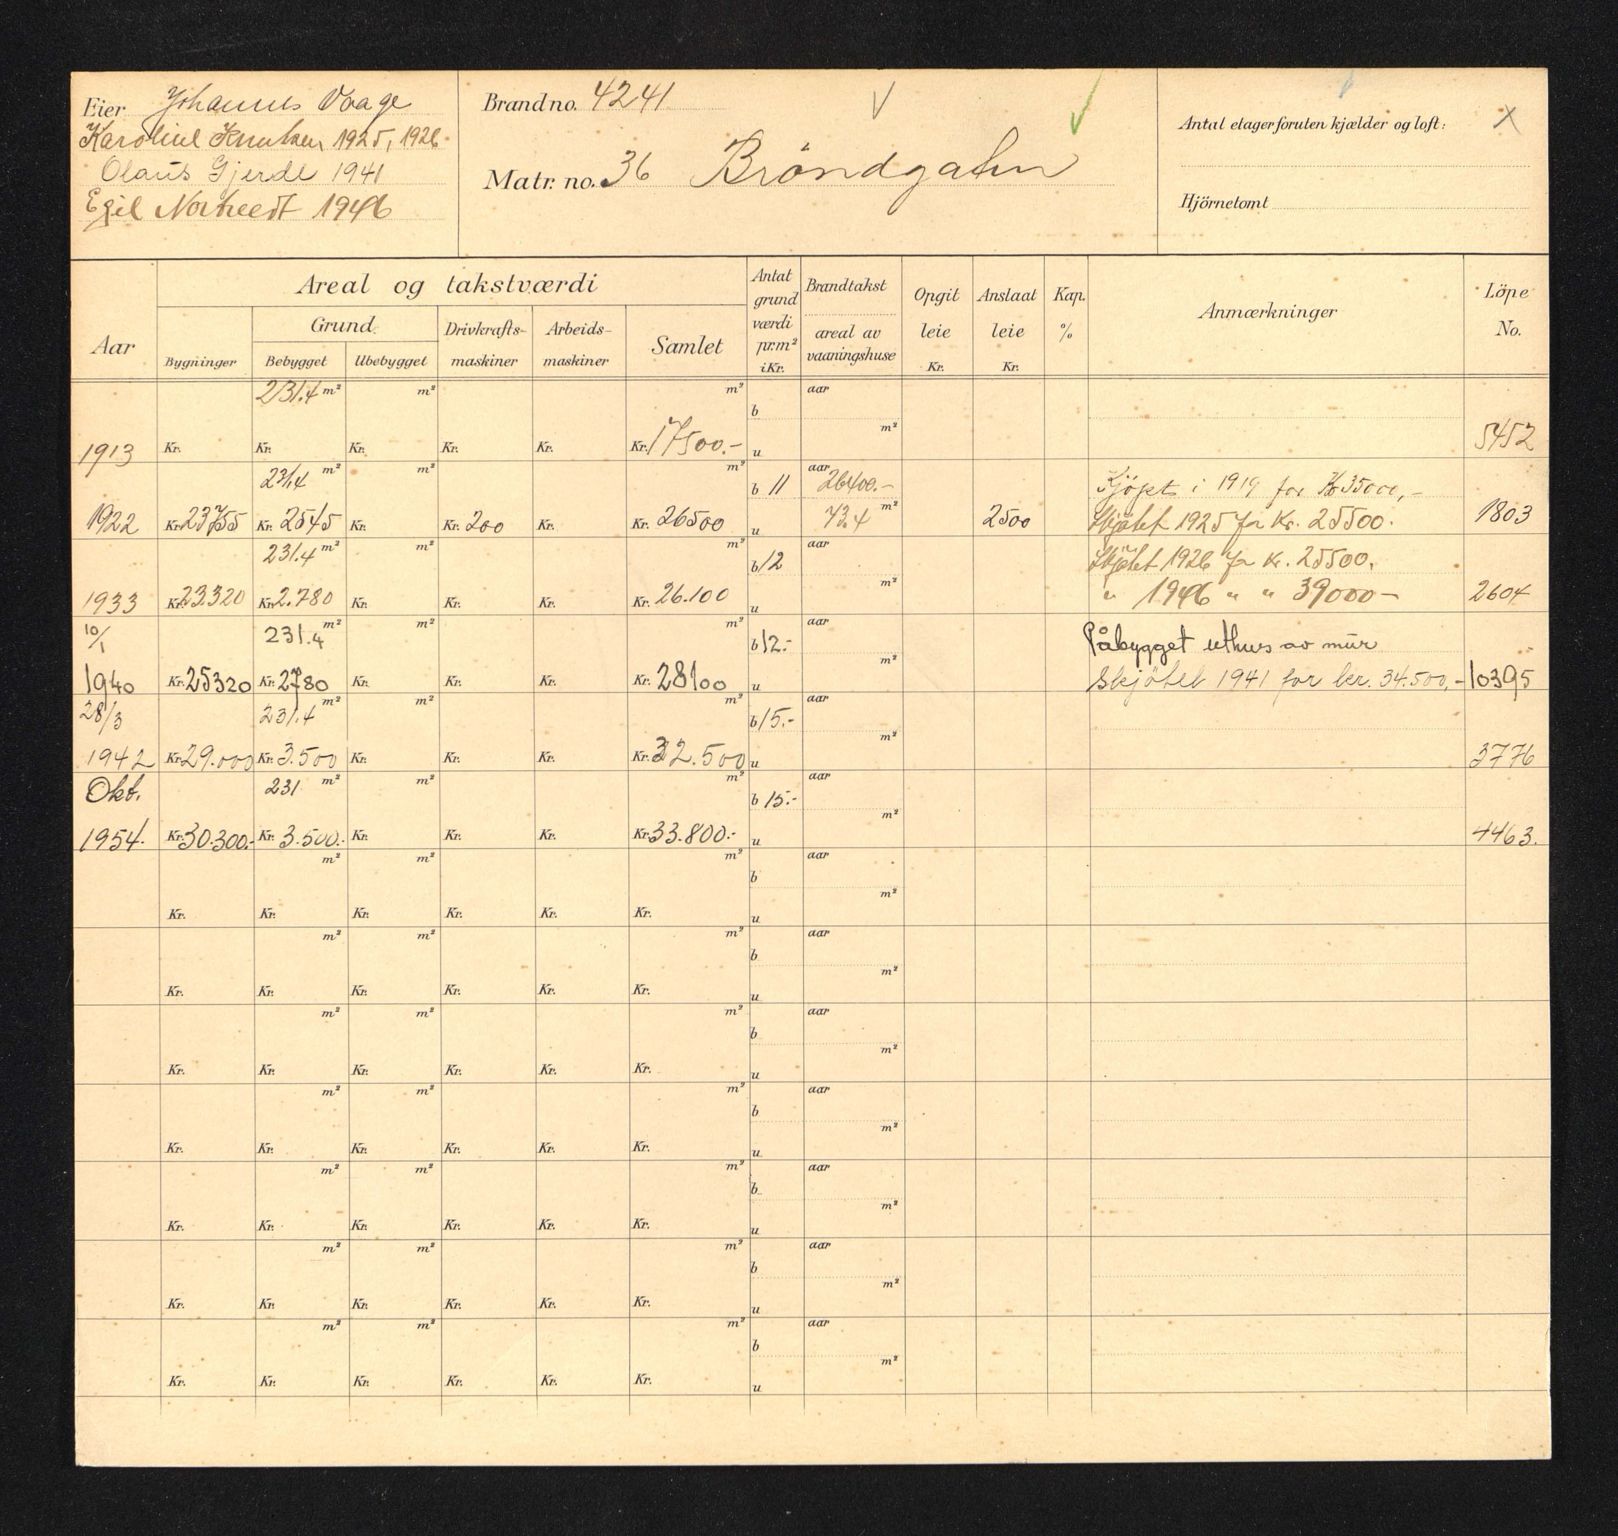 Eier Johannes Vaage
Karoline Knutsen 1925, 1926.
Olaus Gjerde 1941
Egil 1946
Brandno. 4241
Matr. no. 36 Bröndgaten
Antal etager foruten kjælder og loft: X
Hjörnetomt
Aar
Areal og takstværdi
Grund
Bygninger Bebygget Ubebygget
Drivkrafts-maskiner
Arbeids-maskiner
Samlet
Antat grund værdi pr. m² i Kr.
Brandtakst
areal av vaaningshuse
Opgit leie Kr.
Anslaat leie Kr.
Kap. %
Anmærkninger
Löpe No.
231.4 m² m² m² aar
b
m²
1913 Kr. Kr. Kr. Kr. Kr. Kr. 17500.- u 5452
231.4 m² m² m² aar
b 11 26400.- Kjöpt i 1919 for Kr 35000,-
m²
1922 Kr. 23755 Kr. 2545 Kr. Kr. 200 Kr. Kr. 26500 u 73.4 2500 Skjötet 1925 for Kr. 25500. 1803
231.4 m² m² m² aar
b 12 Skjötet 1926 for Kr. 25500.
m²
1933 Kr. 23320 Kr. 2.780 Kr. Kr. Kr. Kr. 26.100 u " 1946 " " 39000- 2604
10/1 231.4 m² m² m² aar
b 12.- Påbygget uthus av mur
m²
1940 Kr. 25320 Kr. 2780 Kr. Kr. Kr. Kr. 28100 u Skjötet 1941 for kr. 34.500,- 10395
28/3 231.4 m² m² m² aar
b 15.-
m²
1942 Kr. 29.000 Kr. 3.500 Kr. Kr. Kr. Kr. 32.500 u 3776
Okt. 231 m² m² m² aar
b 15.-
m²
1954. Kr. 30.300.- Kr. 3.500.- Kr. Kr. Kr. Kr. 33.800.- u 4463.
m² m² m² aar
b
m²
Kr. Kr. Kr. Kr. Kr. Kr. u
m² m² m² aar
b
m²
Kr. Kr. Kr. Kr. Kr. Kr. u
m² m² m² aar
b
m²
Kr. Kr. Kr. Kr. Kr. Kr. u
m² m² m² aar
b
m²
Kr. Kr. Kr. Kr. Kr. Kr. u
m² m² m² aar
b
m²
Kr. Kr. Kr. Kr. Kr. Kr. u
m² m² m² aar
b
m²
Kr. Kr. Kr. Kr. Kr. Kr. u
m² m² m² aar
b
m²
Kr. Kr. Kr. Kr. Kr. Kr. u